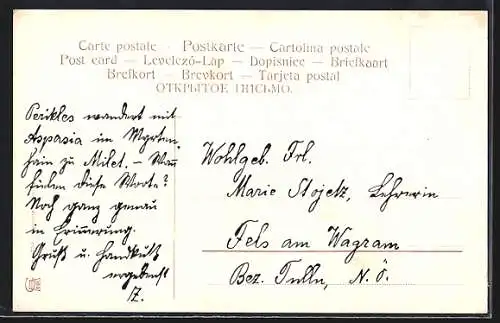 Carte postale — Postkarte — Cartolina postale
Post card — Levelező-Lap — Dopisnice — Briefkaart
Brefkort — Brevkort — Tarjeta postal
ОТКРЫТОЕ ПИСЬМО.
Perikles wandert mit
Aspasia im Myrten-
hain zu Milet. – Wann
fielen diese Worte?
Noch ganz genau
in Erinnerung.
Gruß u. Handkuß
ergebenst
Wohlgeb. Frl.
Marie Stojetz, Lehrerin
Fels am Wagram
Bez. Tulln, N. Ö.